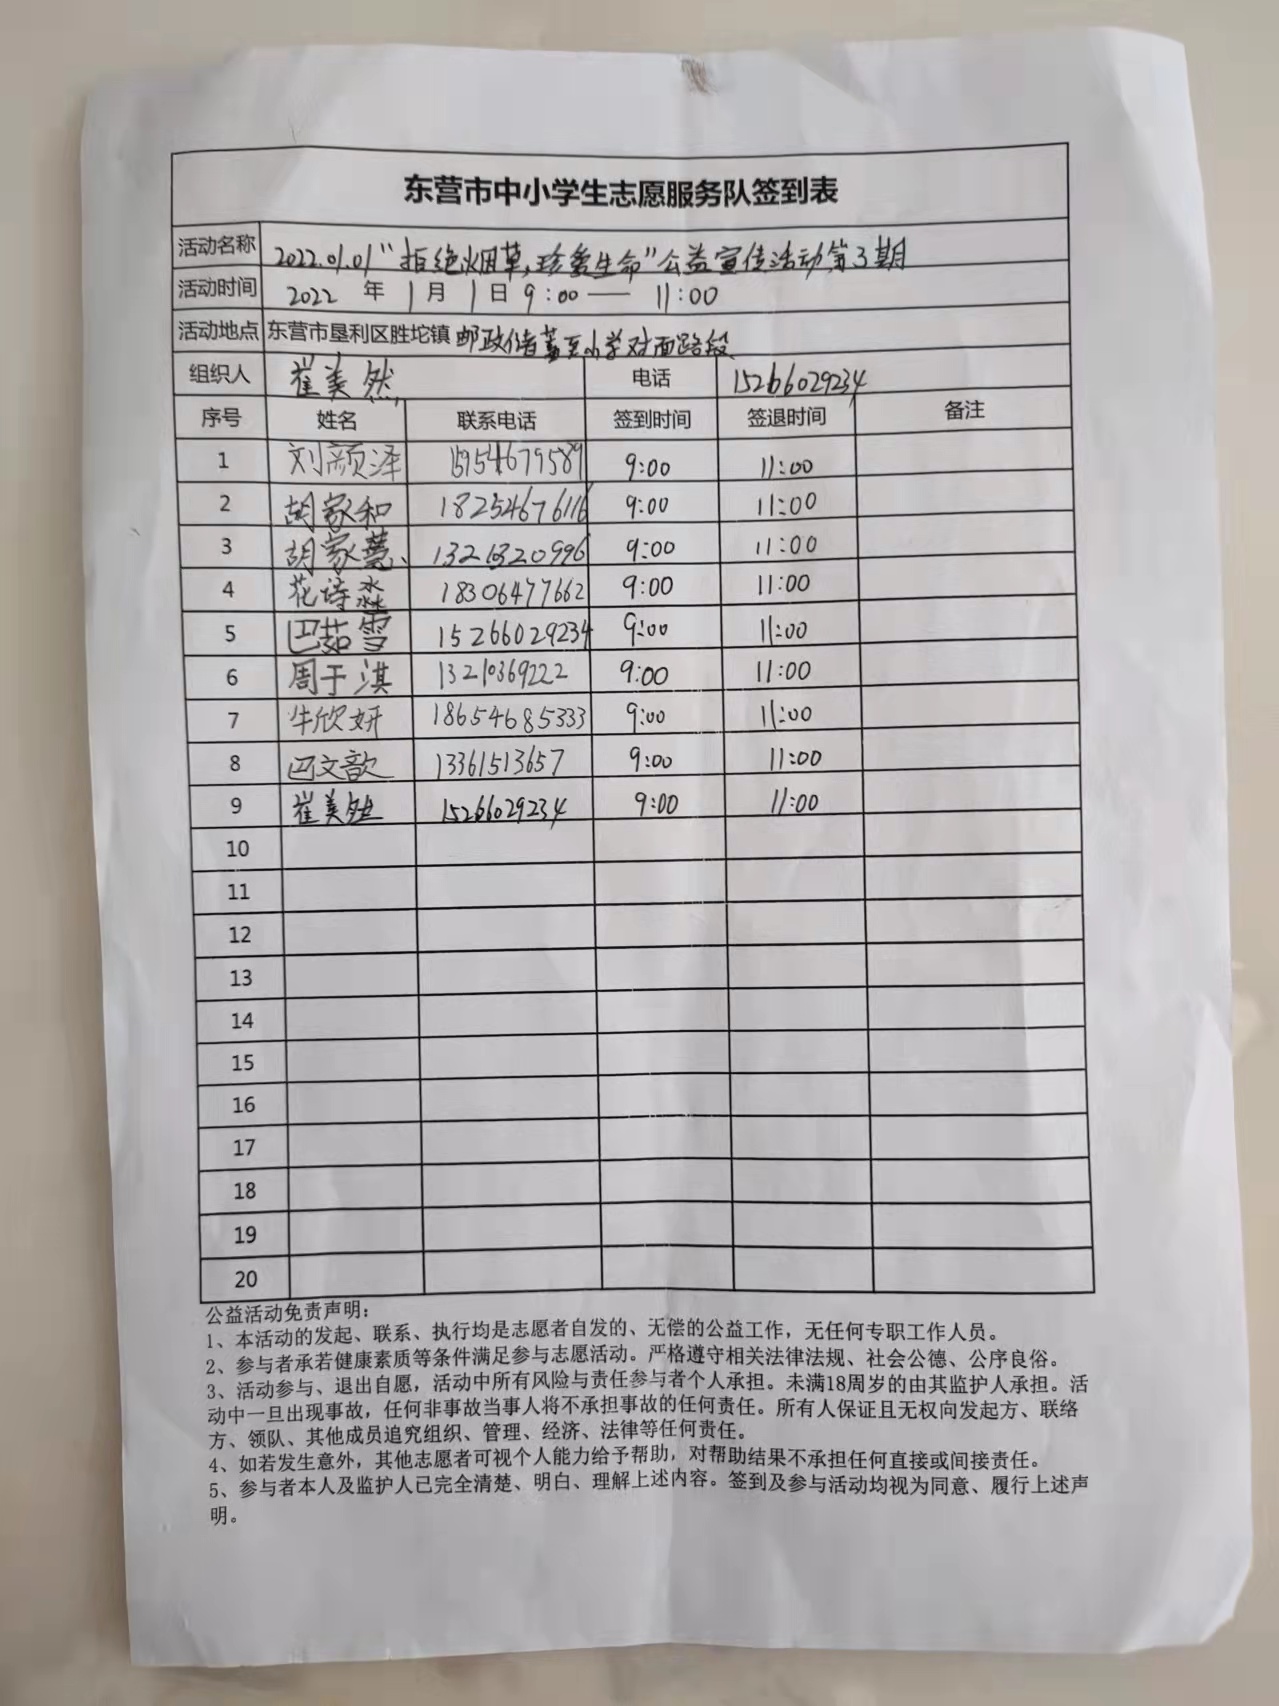 东营市中小学生志愿服务队签到表
活动名称 2022.01.01"拒绝烟草,珍爱生命"公益宣传活动第3期
活动时间 2022 年 1 月 1 日 9:00 — 11:00
活动地点 东营市垦利区胜坨镇 邮政储蓄至小学对面路段
组织人 崔美然 电话 15266029234
序号 姓名 联系电话 签到时间 签退时间 备注
1 刘颜泽 15954679589 9:00 11:00
2 胡家和 18254676116 9:00 11:00
3 胡家慧 9:00 11:00
4 花诗淼 18306477662 9:00 11:00
5 巴茹雪 15266029234 9:00 11:00
6 周于淇 13210369222 9:00 11:00
7 牛欣妍 18654685333 9:00 11:00
8 巴文歆 13361513657 9:00 11:00
9 崔美然 15266029234 9:00 11:00
10
11
12
13
14
15
16
17
18
19
20
公益活动免责声明:
1、本活动的发起、联系、执行均是志愿者自发的、无偿的公益工作，无任何专职工作人员。
2、参与者承若健康素质等条件满足参与志愿活动。严格遵守相关法律法规、社会公德、公序良俗。
3、活动参与、退出自愿，活动中所有风险与责任参与者个人承担。未满18周岁的由其监护人承担。活
动中一旦出现事故，任何非事故当事人将不承担事故的任何责任。所有人保证且无权向发起方、联络
方、领队、其他成员追究组织、管理、经济、法律等任何责任。
4、如若发生意外，其他志愿者可视个人能力给予帮助，对帮助结果不承担任何直接或间接责任。
5、参与者本人及监护人已完全清楚、明白、理解上述内容。签到及参与活动均视为同意、履行上述声
明。